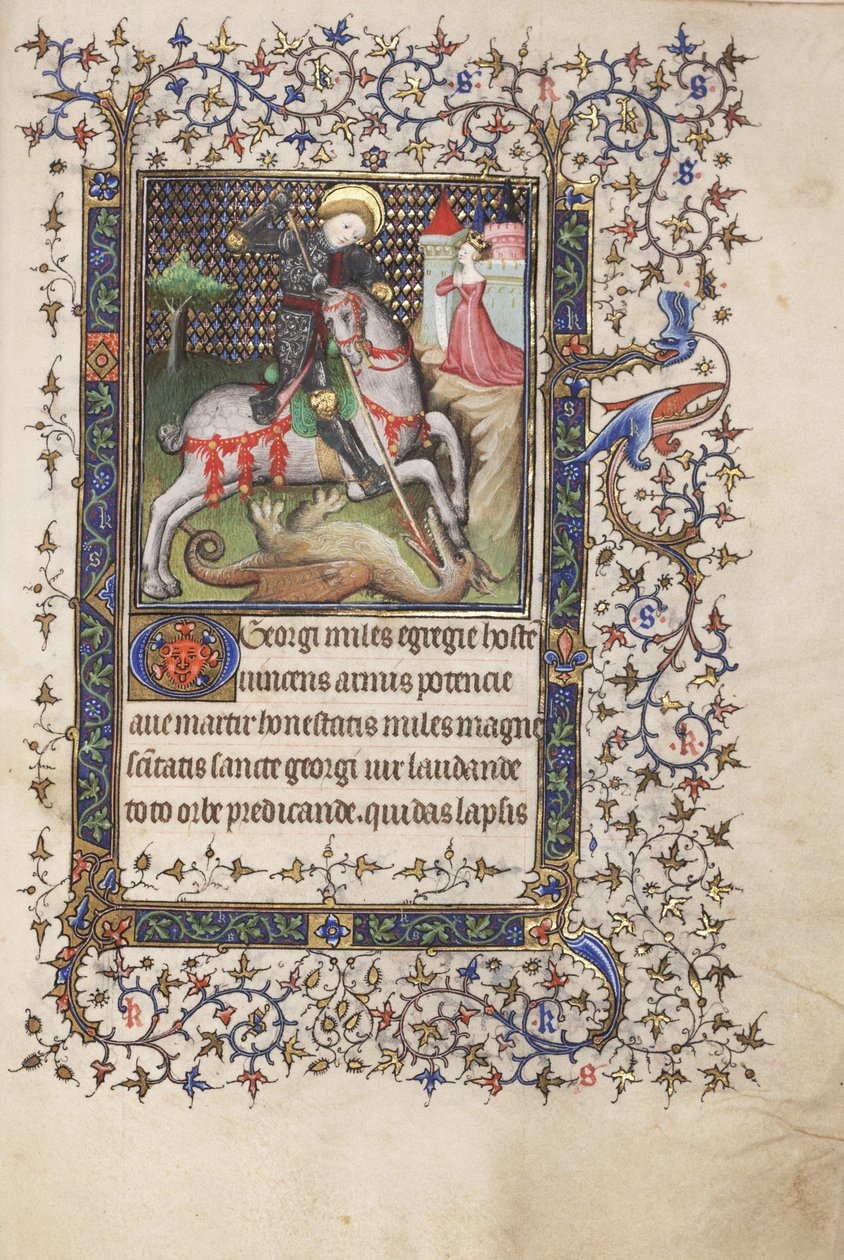 O Georgi miles egregie hoste
uincens armis potencie
aue martir honestatis miles magne
sc̄itatis sancte georgi uir laudande
toto orbe predicande. qui das lapsis